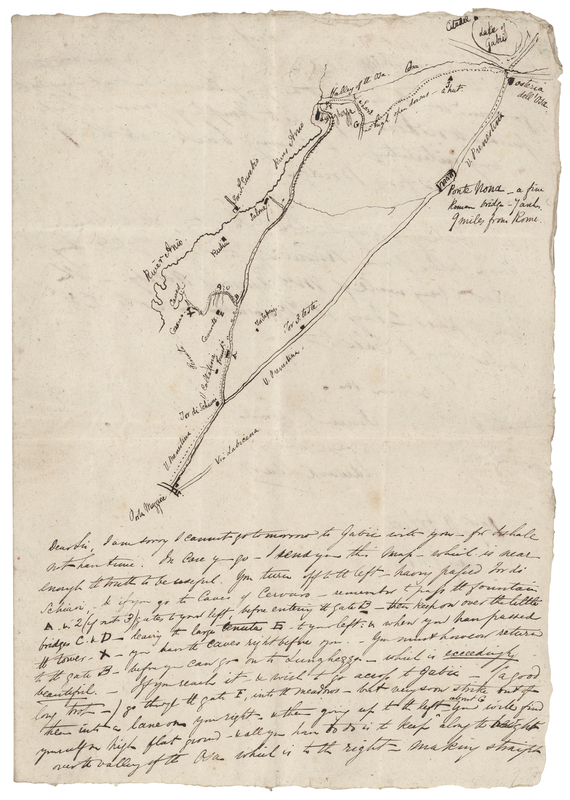 Citadel
Lake of
Gabii
Valley of the Osa
Osa
Osteria
dell' Osa
Cave
a hut
high open downs
G
F
Lunghezza
River Anio
V. Prenestina
Ponte Nona - a fine
Roman bridge - 7 and
9 miles from Rome.
River Anio
Rustica
Caves
Cervara
D
C
E
B
Tor 3 teste
V. Collatina
V. Prenestina
Tor di Schiavi
V. Prenestina
Via Labicana
Porta Maggiore
Dear Sir, I am sorry I cannot go tomorrow to Gabii with you - for I shall
not have time. In case you go - I send you this map - which is near
enough the truth to be useful. You turn off to the left - having passed Tor di
Schiavi, & if you go to Caves of Cervaro - remember to pass the fountain
A. & 2 (if not 3) gates to your left, before entering the gate B - then keep on over the little
bridges C. & D - leaving the large tenuta E - to your left: & when you have passed
the tower - X - you have the caves right before you. You must however return
to the gate B - before you can go on to Lunghezza - which is exceedingly
beautiful. - If you reach it & wish to go across to Gabii - (a good
long trot -) go through the gate F, into the meadows - but very soon strike out of
them into a lane on your right, & then going up to the left about G you will find
yourself on high flat ground - & all you have to do is to keep along the height
over the valley of the Osa which is to the right - making straight